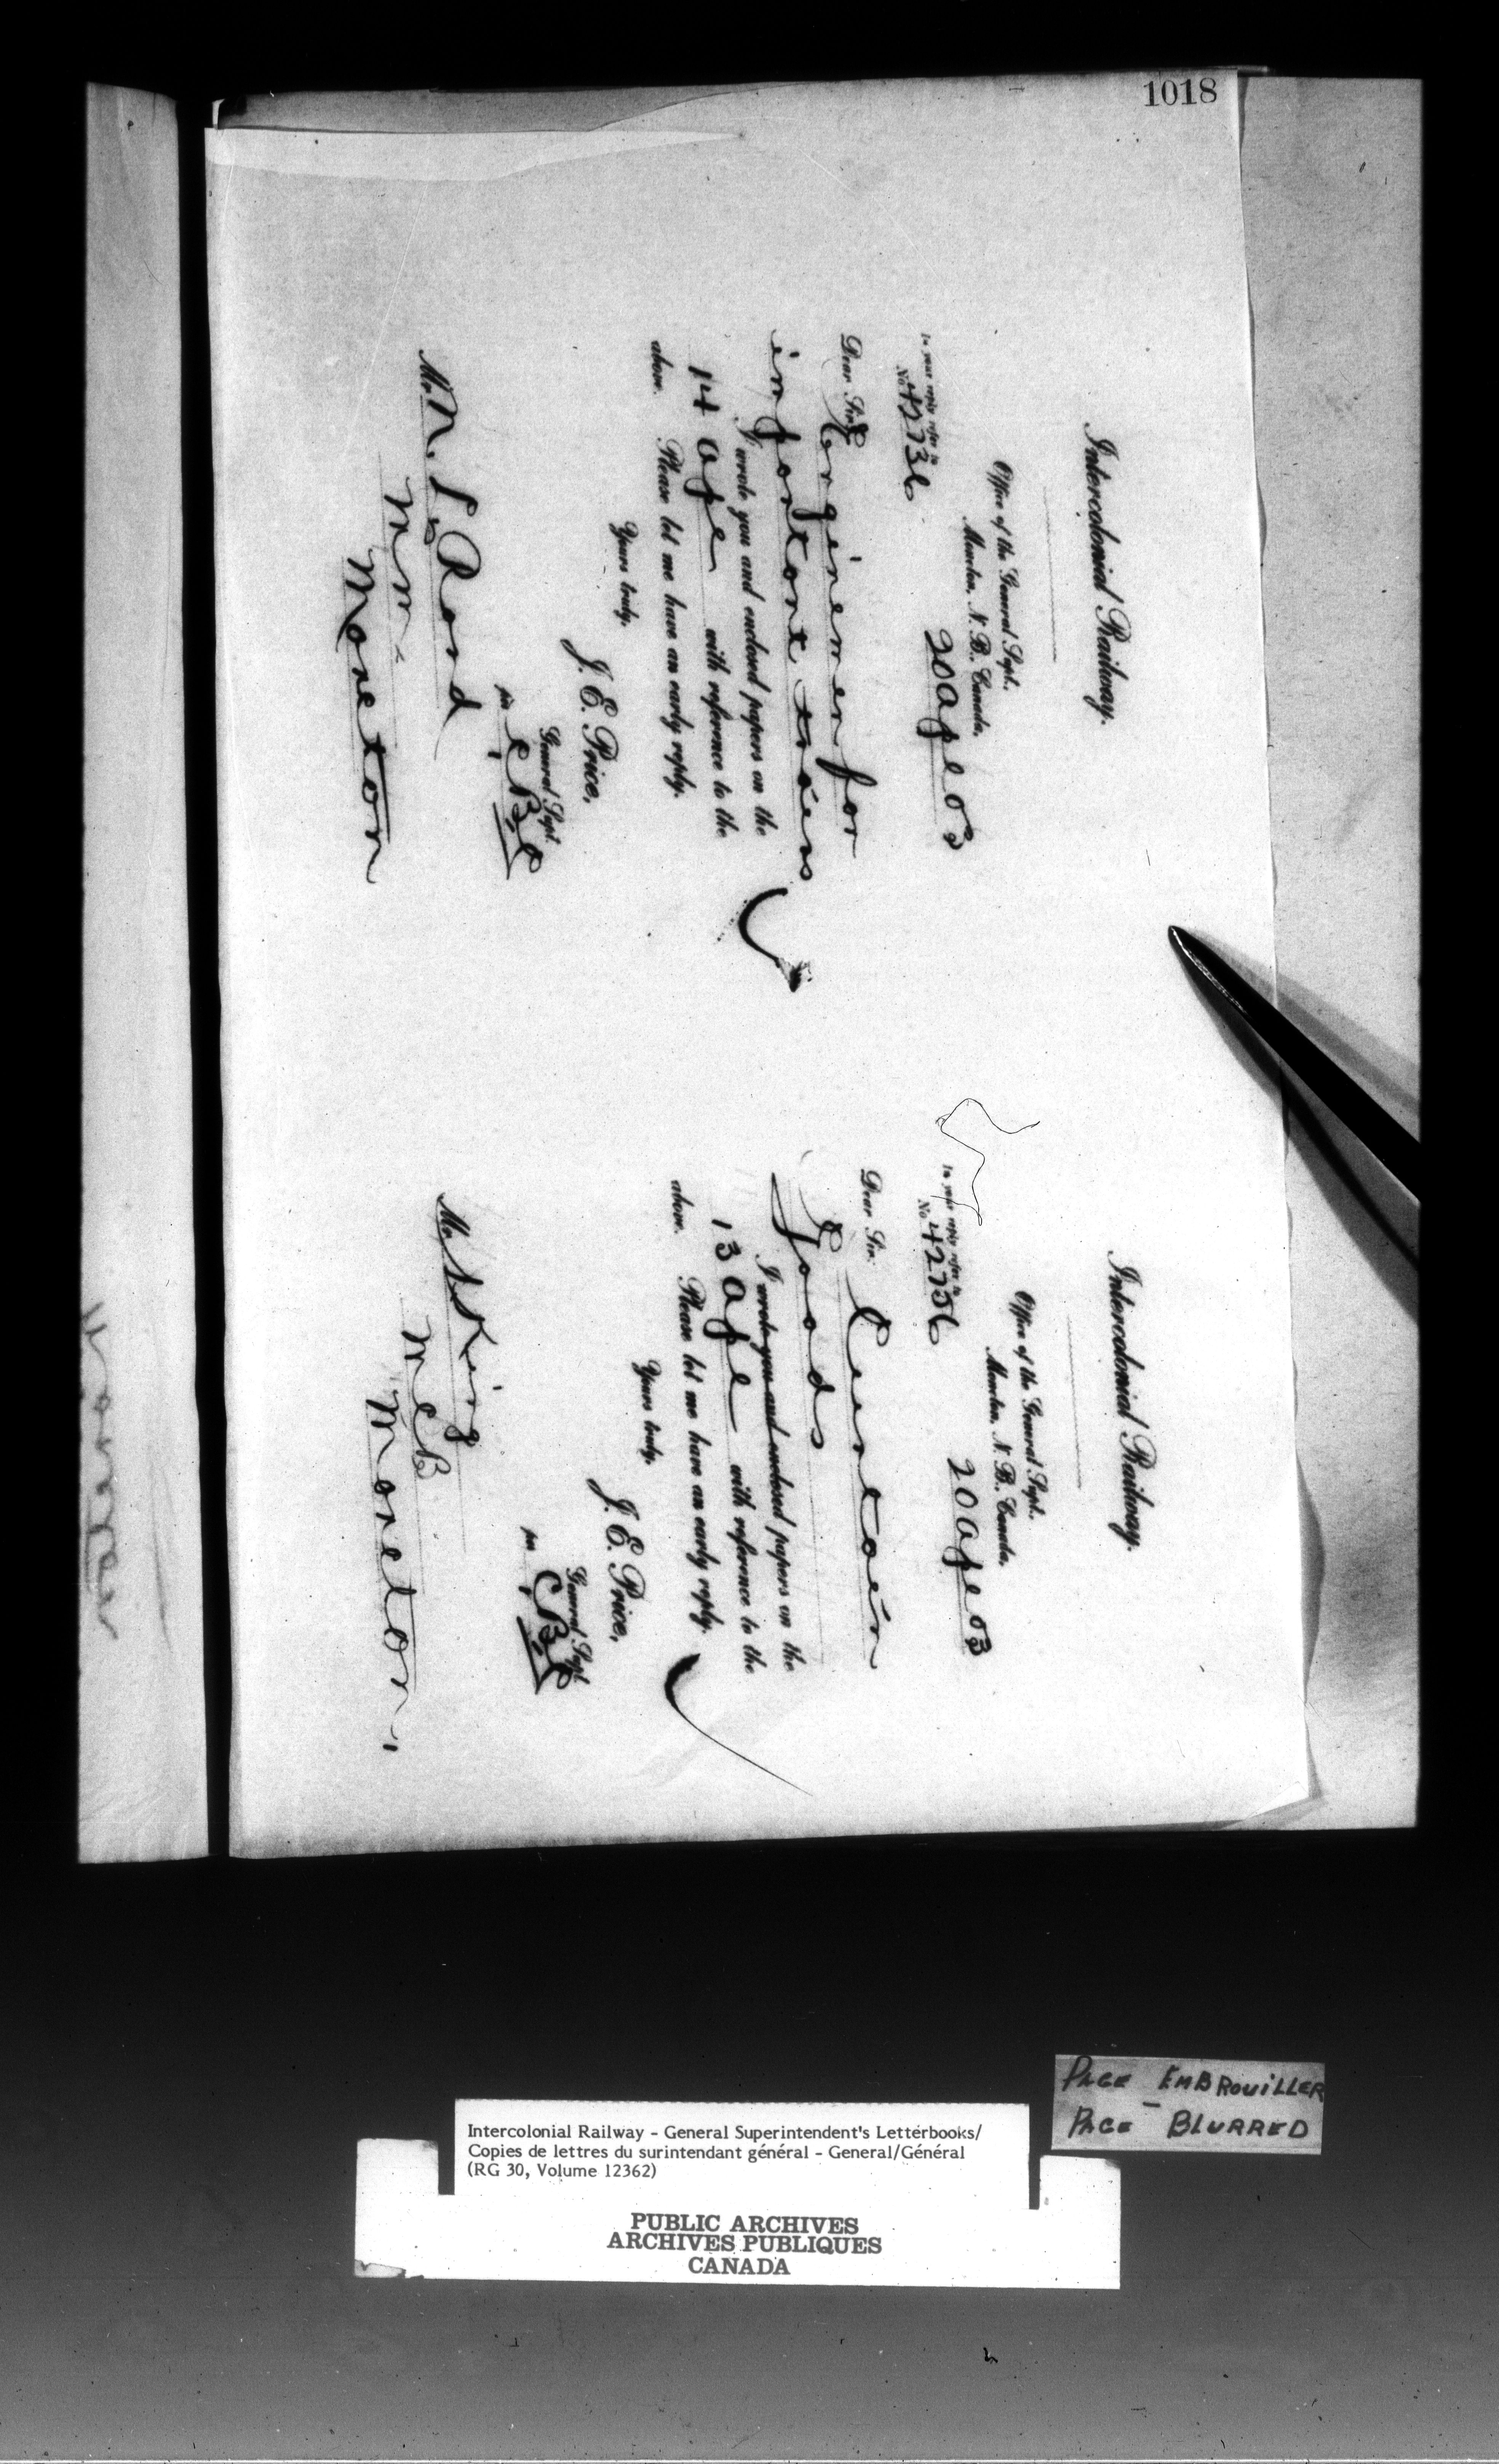 1018
Intercolonial Railway.
Office of the General Supt.,
Moncton, N. B., Canada,
20 Apl 03
In your reply refer to
No 42736
Dear Sir, Enginemen for
important trains
I wrote you and enclosed papers on the
14 Apl with reference to the
above. Please let me have an early reply.
Yours truly,
J. E. Price,
General Supt.
per
Mr N. L. Rand
Moncton
Intercolonial Railway.
Office of the General Supt.,
Moncton, N. B., Canada,
20 Apl 03
In your reply refer to
No 42756
Dear Sir,
Goods
I wrote you and enclosed papers on the
13 Apl with reference to the
above. Please let me have an early reply.
Yours truly,
J. E. Price,
General Supt.
per
Mr S King
Moncton
PAGE EMBROUILLER
PAGE - BLURRED
Intercolonial Railway - General Superintendent's Letterbooks/
Copies de lettres du surintendant général - General/Général
(RG 30, Volume 12362)
PUBLIC ARCHIVES
ARCHIVES PUBLIQUES
CANADA